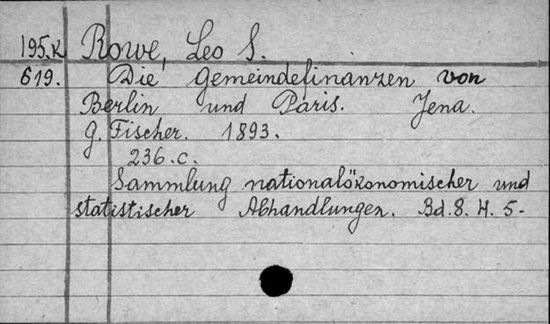 195.K Rowe, Leo S.
619. Die Gemeindefinanzen von
Berlin und Paris. Jena.
G. Fischer. 1893.
236.c.
Sammlung nationalökonomischer und
statistischer Abhandlungen. Bd.8. H. 5-